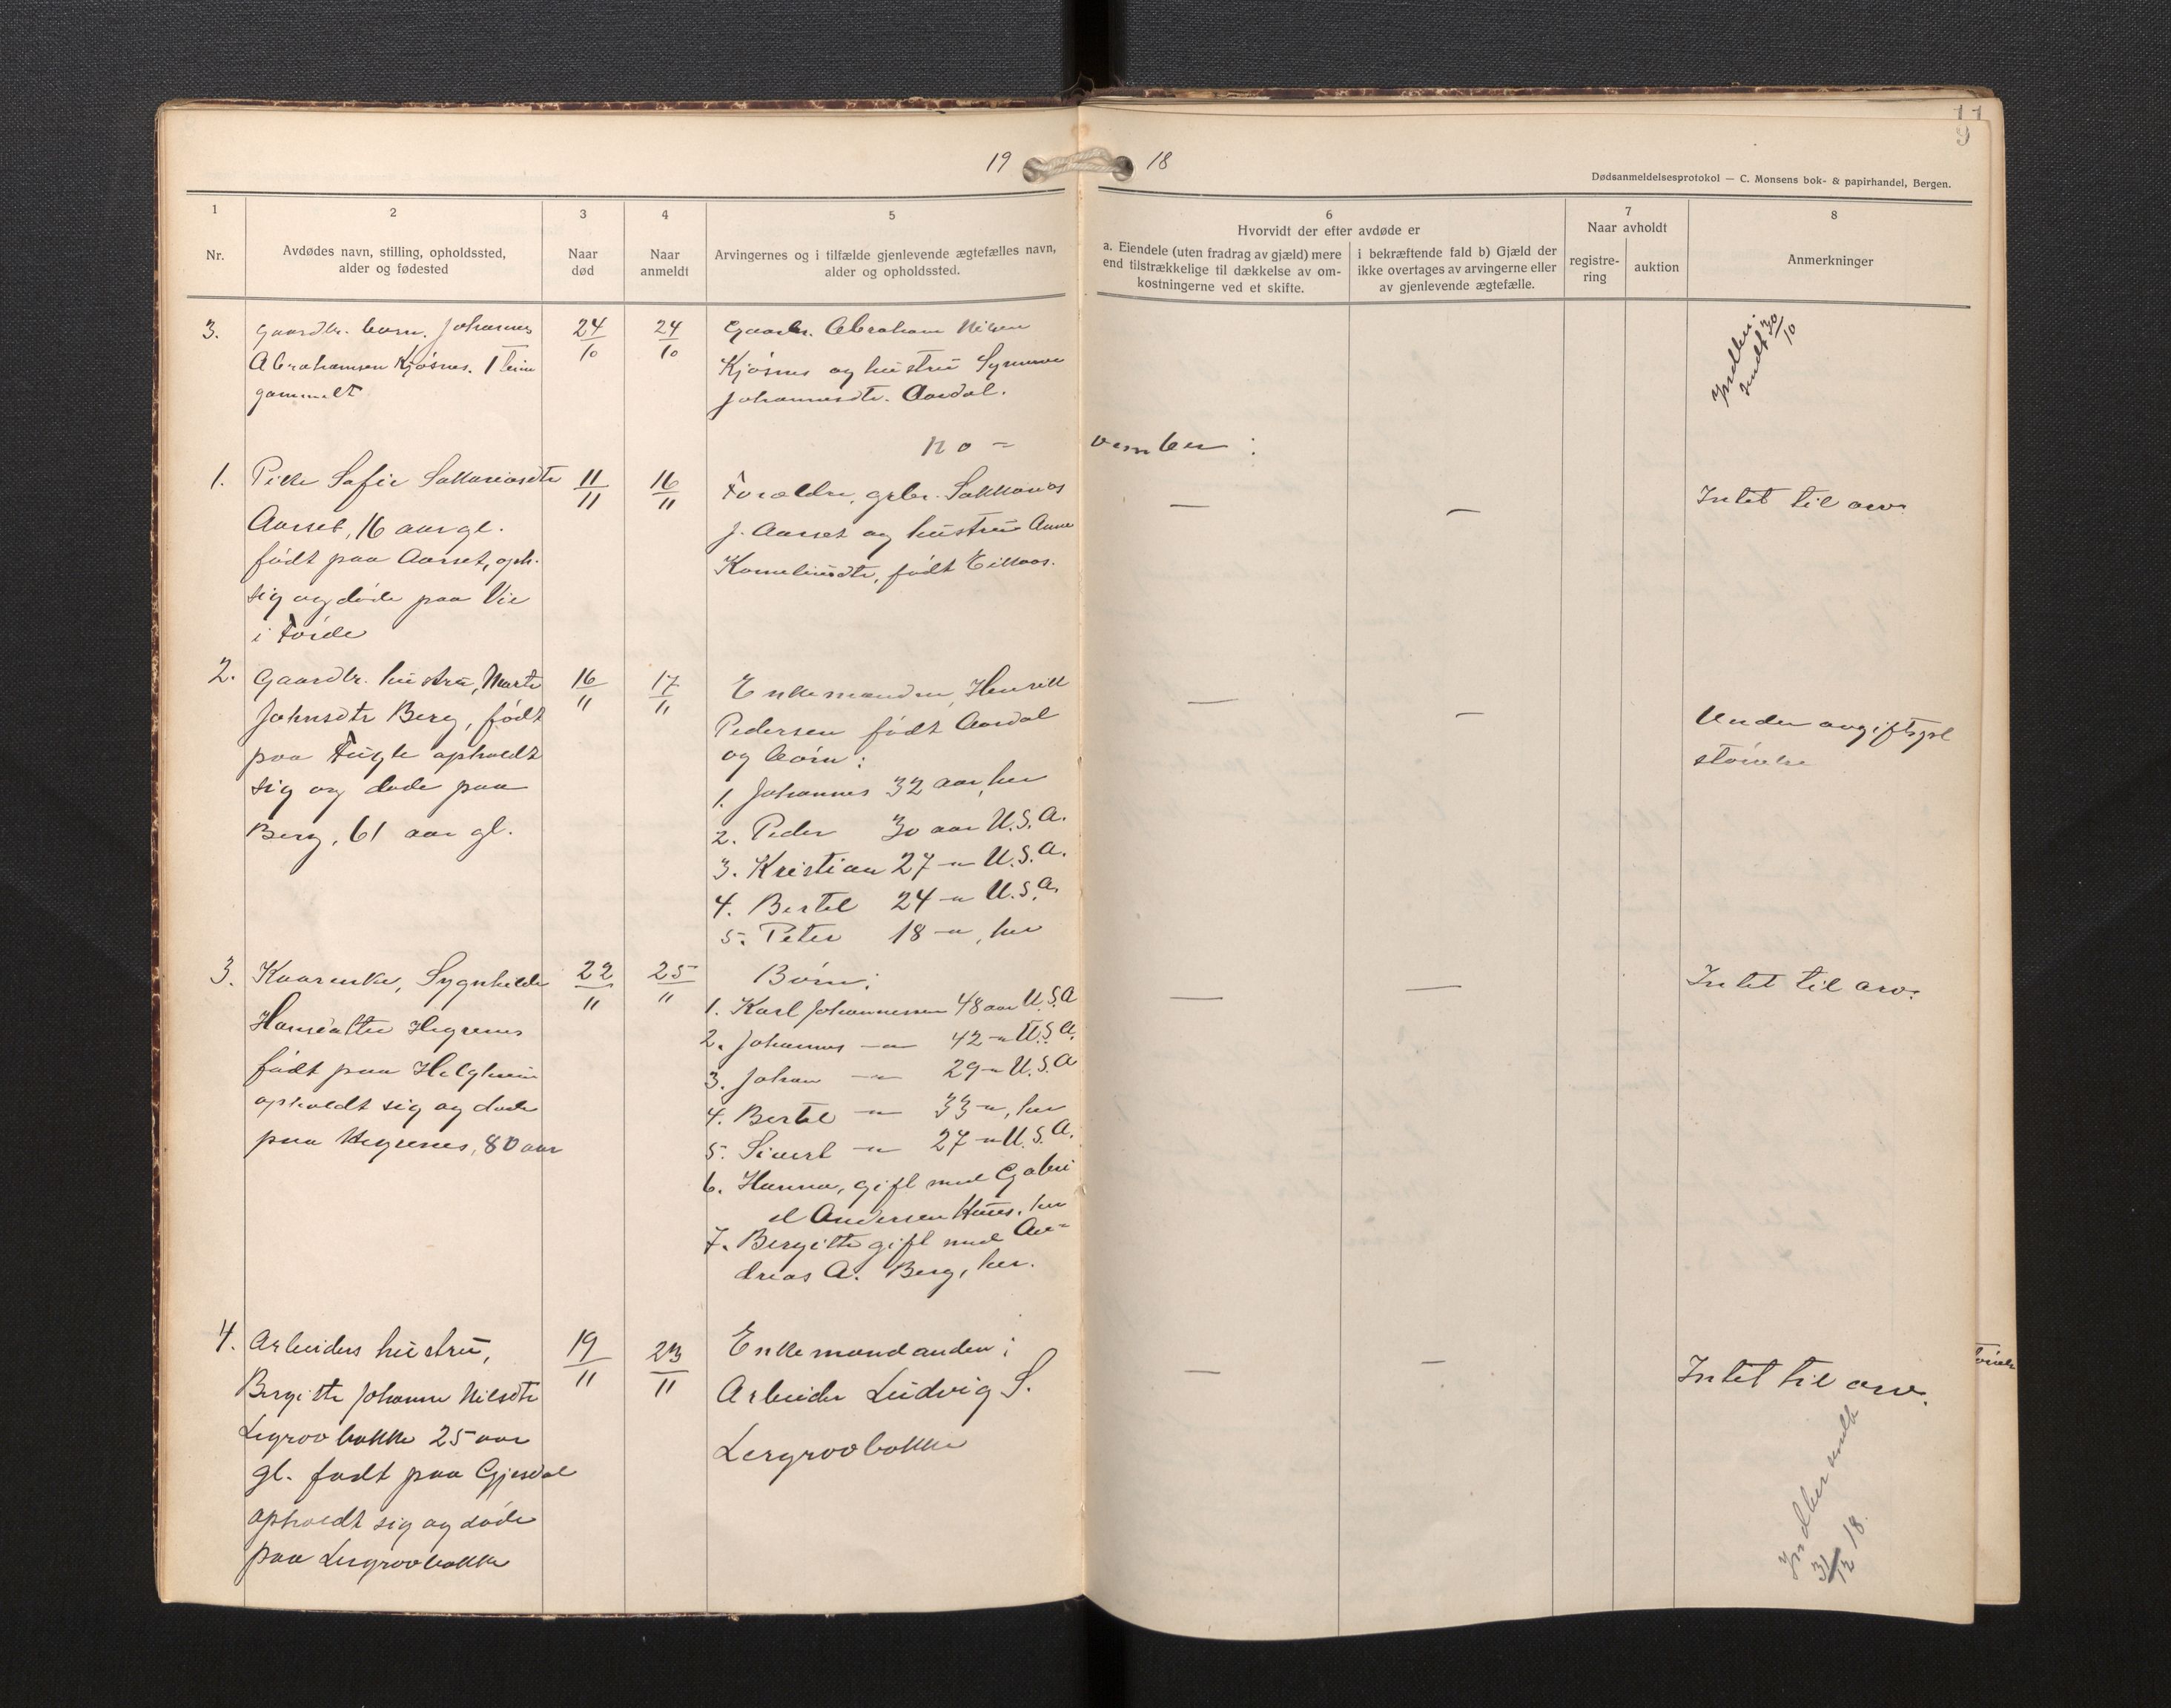 19 18
9
Dødsanmeldelsesprotokol — C. Monsens bok- & papirhandel, Bergen.
1 2 3 4 5 6 7 8
Nr.
Avdødes navn, stilling, opholdssted,
alder og fødested
Naar
død
Naar
anmeldt
Arvingernes og i tilfælde gjenlevende ægtefælles navn,
alder og opholdssted.
Hvorvidt der efter avdøde er
a. Eiendele (uten fradrag av gjæld) mere
end tilstrækkelige til dækkelse av om-
kostningerne ved et skifte.
i bekræftende fald b) Gjæld der
ikke overtages av arvingerne eller
av gjenlevende ægtefælle.
Naar avholdt
registre-
ring
auktion
Anmerkninger
3. Gaardbr. barn, Johannes
Abrahamsen Kjøsnes. 1 time
gammelt
24/10
24/10
Gaardbr. Abraham Nilsen
Kjøsnes og hustru Synneve
Johannesdtr. Aardal.
Indber.
sendt 30/10
No-vember:
1. Pike Sofie Sakkariasdtr
Aarset, 16 aar gl.
født paa Aarset, oph.
sig og døde paa Vie
i Førde
11/11
16/11
Forældre, grbr. Sakkarias
J. Aarset og hustru Anne
Korneliusdtr, født Eikaas.
— —
Intet til arv.
2. Gaardbr. hustru, Marte
Johnsdtr Berg, født
paa Fugle opholdt
sig og døde paa
Berg, 61 aar gl.
16/11
17/11
Enkemanden, Henrik
Pedersen født Aardal
og børn:
1. Johannes 32 aar, her
2. Peder 30 aar U.S.A.
3. Kristian 27 -"- U.S.A.
4. Bertel 24 -"- U.S.A.
5. Peter 18 -"-, her
— —
Under avgiftspl
størrelse
3. Kaarenke, Sygnhilde
Hansdatter Hegrenes
født paa Helgheim
opholdt sig og døde
paa Hegrenes, 80 aar
22/11
25/11
Børn:
1. Karl Johannessen 48 aar U.S.A
2. Johannes -"- 42 -"- U.S.A.
3. Johan -"- 29 -"- U.S.A
4. Bertel -"- 33 -"-, her
5. Sivert -"- 27 -"- U.S.A.
6. Hanna, gift med Gabri
el Andersen Huus, her
7. Bergitte gift med An-
dreas A. Berg, her.
— —
Intet til arv.
4. Arbeiders hustru,
Bergitte Johanne Nilsdtr
Lergrovbakke 25 aar
gl. født paa Gjesdal
opholdt sig og døde
paa Lergrovbakke
19/11
23/11
Enkemandanden:
Arbeider Ludvig S.
Lergrovbakke
— —
Intet til arv.
Indber sendt
31/12 18.